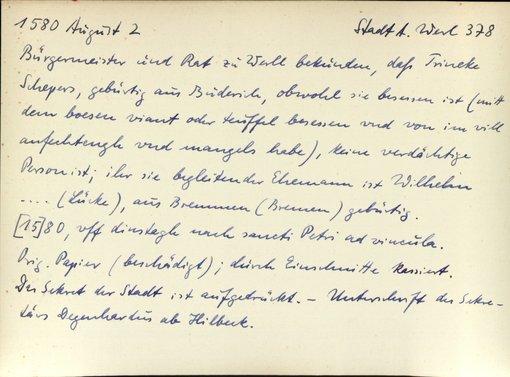 1580 August 2 Stadt A. Werl 378
Bürgermeister und Rat zu Werll bekunden, daß Trineke
Schepers, gebürtig aus Büderich, obwohl sie besessen ist (mitt
dem boesen viant oder teuffel besessen vnd von im vill
anfechtengh vnd mangels habe), keine verdächtige
Person ist; ihr sie begleitender Ehemann ist Wilhelm
.... (Lücke), aus Bremmen (Bremen) gebürtig.
[15]80, vff dinstagh nach sancti Petri ad vincula.
Orig. Papier (beschädigt); durch Einschnitte kassiert.
Das Sekret der Stadt ist aufgedrückt. – Unterschrift des Sekre-
tärs Degenhardus ab Hilbeck.